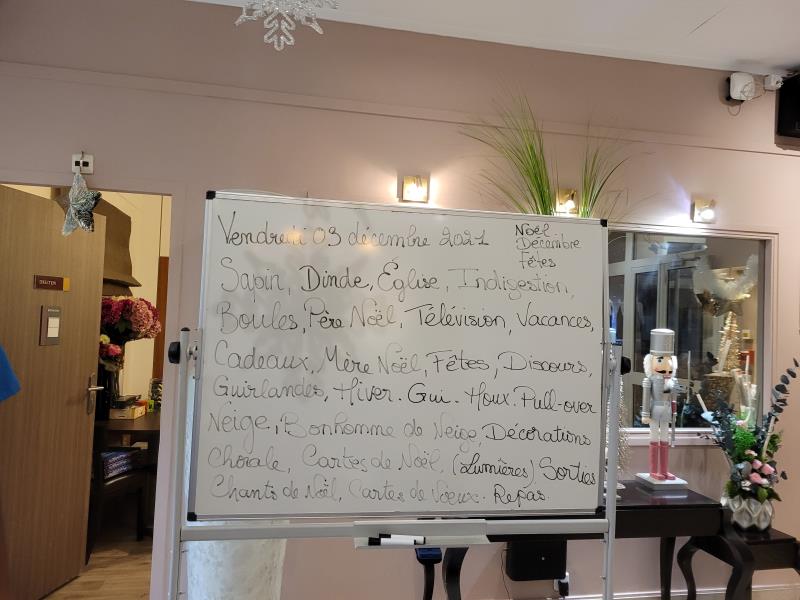 Vendredi 03 décembre 2021
Noël
Décembre
Fêtes
Sapin, Dinde, Église, Indigestion,
Boules, Père Noël, Télévision, Vacances,
Cadeaux, Mère Noël, Fêtes, Discours,
Guirlandes, Hiver. Gui. Houx. Pull-over
Neige, Bonhomme de Neige, Décorations
Chorale, Cartes de Noël, (Lumières), Sorties
Chants de Noël, Cartes de Voeux. Repas